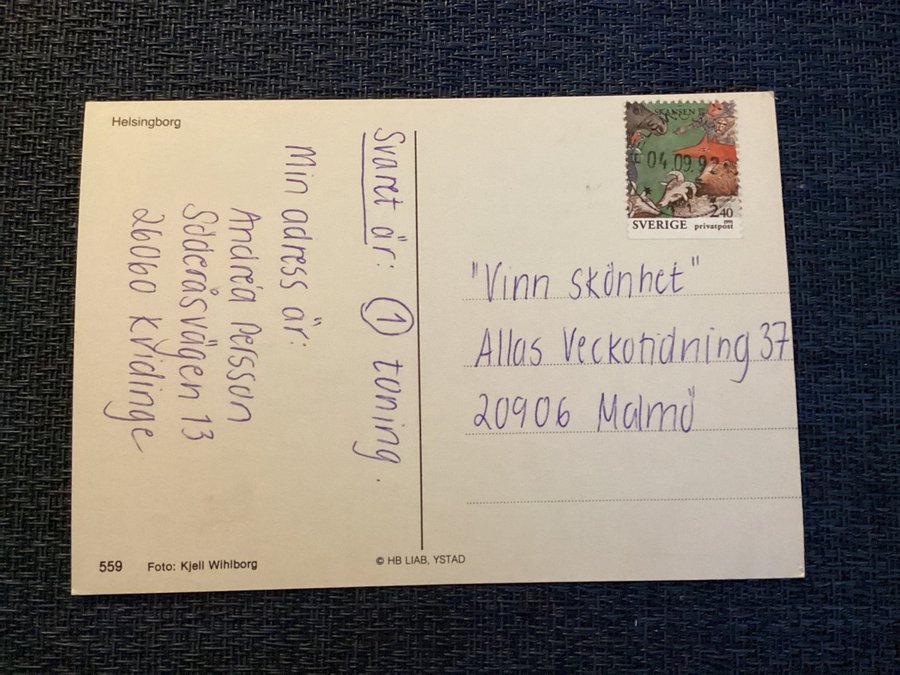 Helsingborg
Svaret är: 1 toning.
Min adress är:
Andréa Persson
Söderåsvägen 13
26060 Kvidinge
559 Foto: Kjell Wihlborg
© HB LIAB, YSTAD
SKANSEN
04.09.92
2.40
SVERIGE privatpost
"Vinn skönhet"
Allas Veckotidning 37
20906 Malmö